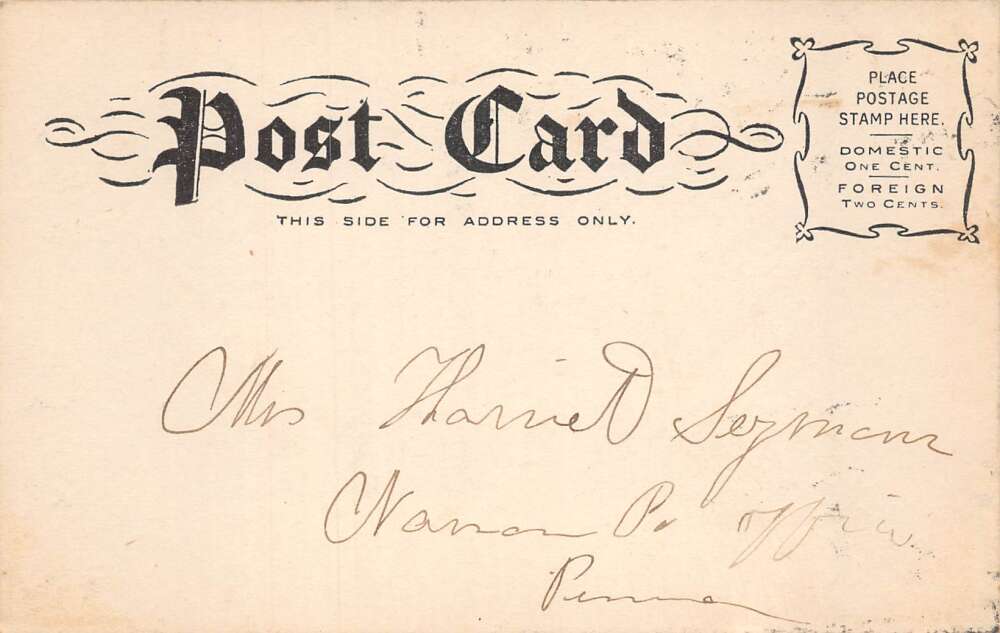 Post Card
THIS SIDE FOR ADDRESS ONLY.
PLACE
POSTAGE
STAMP HERE.
DOMESTIC
ONE CENT.
FOREIGN
TWO CENTS.
Mrs Harriet Seymour
Po office
Penna